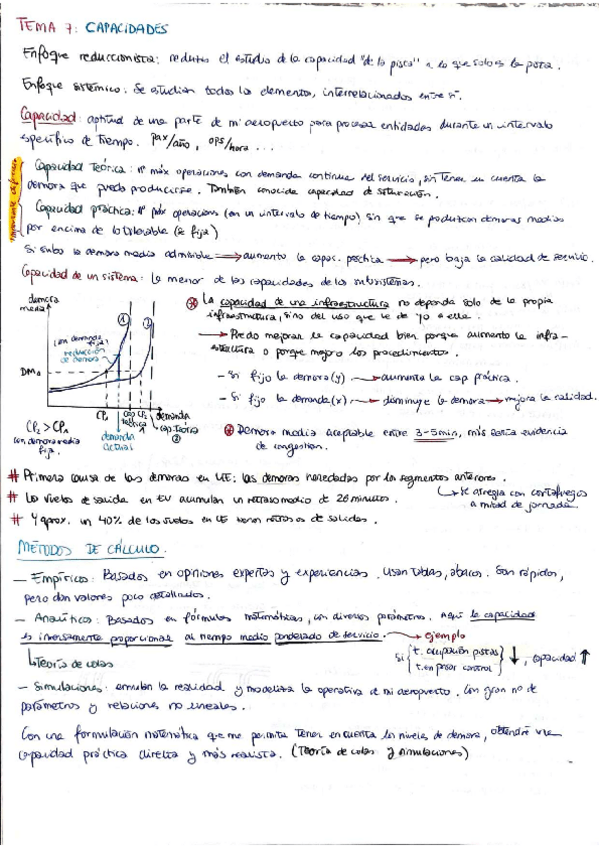 TEMA 7: CAPACIDADES
Enfoque reduccionista: reduzco el estudio de la capacidad "de la pista" a lo que solo es la pista.
Enfoque sistémico: Se estudian todos los elementos, interrelacionados entre sí.
Capacidad: aptitud de una parte de mi aeropuerto para procesar entidades durante un intervalo
específico de tiempo. pax/año, ops/hora ...
importante diferenciar
Capacidad Teórica: nº máx operaciones con demanda continua del servicio, sin tener en cuenta la
demora que pueda producirse. También conocida capacidad de saturación.
Capacidad práctica: nº máx operaciones (en un intervalo de tiempo) sin que se produzcan demoras medias
por encima de lo tolerable (se fija)
Si subo la demora media admisible → aumento la capac. práctica → pero baja la calidad de servicio.
Capacidad de un sistema: la menor de las capacidades de los subsistemas.
demora
media
(con demanda
fija)
reducción
de demora
DM₀
1
2
CP₁
cap CP₂
teórica
1
demanda
cap. teórica
2
demanda
actual
CP₂ > CP₁
con demora media
fija.
* La capacidad de una infraestructura no depende solo de la propia
infraestructura, sino del uso que le de yo a ella.
→ Puedo mejorar la capacidad bien porque aumento la infra-
estructura o porque mejoro los procedimientos.
- Si fijo la demora (y) → aumenta la cap práctica.
- Si fijo la demanda (x) → disminuye la demora → mejora la calidad.
* Demora media aceptable entre 3-5min, más sería evidencia
de congestion.
# Primera causa de las demoras en UE: las demoras heredadas por los segmentos anteriores.
→ se arregla con cortafuegos
a mitad de jornada.
# Los vuelos de salida en EU acumulan un retraso medio de 26 minutos.
# Y aprox. un 40% de los vuelos en UE tienen retrasos de salidas.
MÉTODOS DE CÁLCULO.
- Empíricos: Basados en opiniones expertas y experiencias. Usan tablas, ábacos. Son rápidos,
pero dan valores poco detallados.
- Analíticos: Basados en fórmulas matemáticas, con diversos parámetros. Aquí la capacidad
es inversamente proporcional al tiempo medio ponderado de servicio. → ejemplo
Si { t. ocupación pistas
t. en pasar control } ↓, capacidad ↑
↳ Teoría de colas
- Simulaciones: emulan la realidad y modeliza la operativa de mi aeropuerto. Con gran no de
parámetros y relaciones no lineales.
Con una formulación matemática que me permita tener en cuenta los niveles de demora, obtendré una
capacidad práctica directa y más realista. (Teoría de colas y simulaciones)